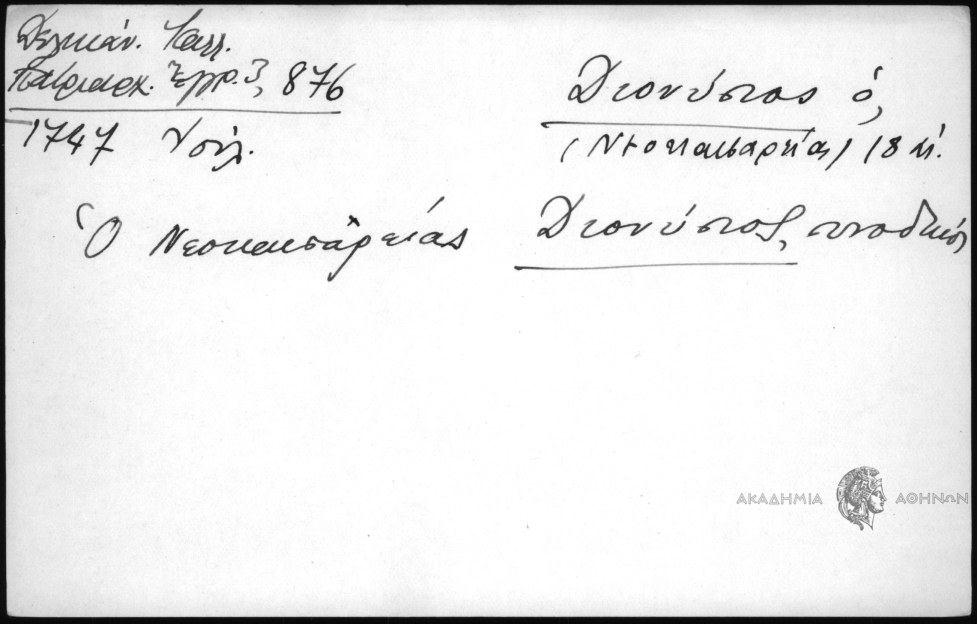 Δελικάν. Καλλ.
Πατριαρχ. Ἔγγρ. 3, 876
1747 Ἰούλ.
Διονύσιος ὁ,
(Νεοκαισαρείας) 18 αἰ.
Ὁ Νεοκαισαρείας Διονύσιος, συνοδικός
ΑΚΑΔΗΜΙΑ ΑΘΗΝΩΝ